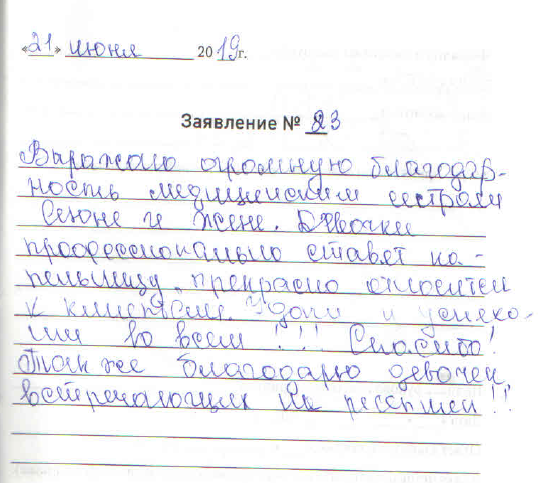 «21» июня 2019г.
Заявление № 23
Выражаю огромную благодар-
ность медицинским сестрам
и жене. Девочки
профессионально ставят ка-
пельницу, прекрасно относятся
к клиентам. Удачи и успехо-
во всем!!! Спасибо!
Так же благодарю девочек,
встречающих на ресепшен!!